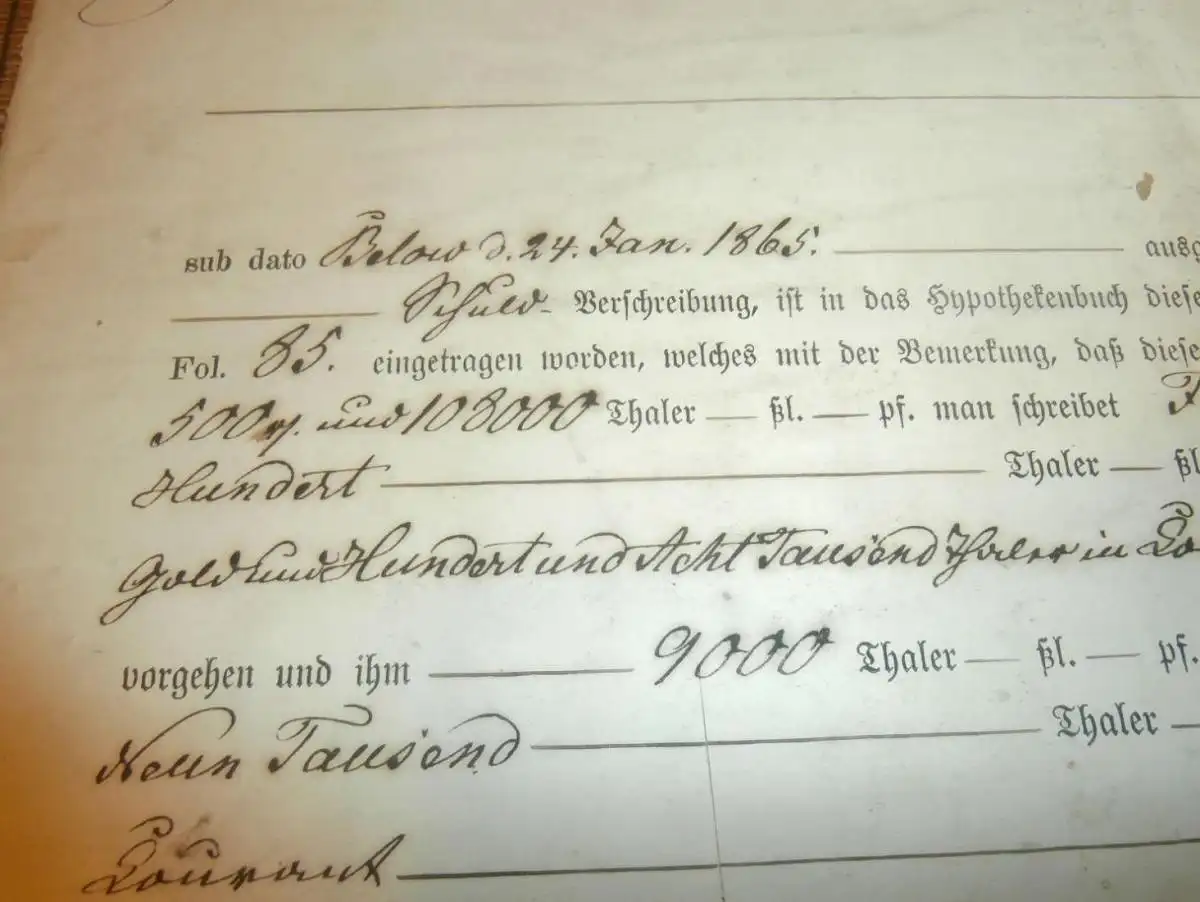 sub dato Below d. 24. Jan. 1865. ausg
Schuld- Verschreibung, ist in das Hypothekenbuch diese
Fol. 85. eingetragen worden, welches mit der Bemerkung, daß diese
500 und 108000 Thaler — ßl. — pf. man schreibet F
Hundert Thaler — ßl
Gold und Hundert und Acht Tausend Thaler in Co
vorgehen und ihm 9000 Thaler — ßl. — pf.
Neun Tausend Thaler —
Courant